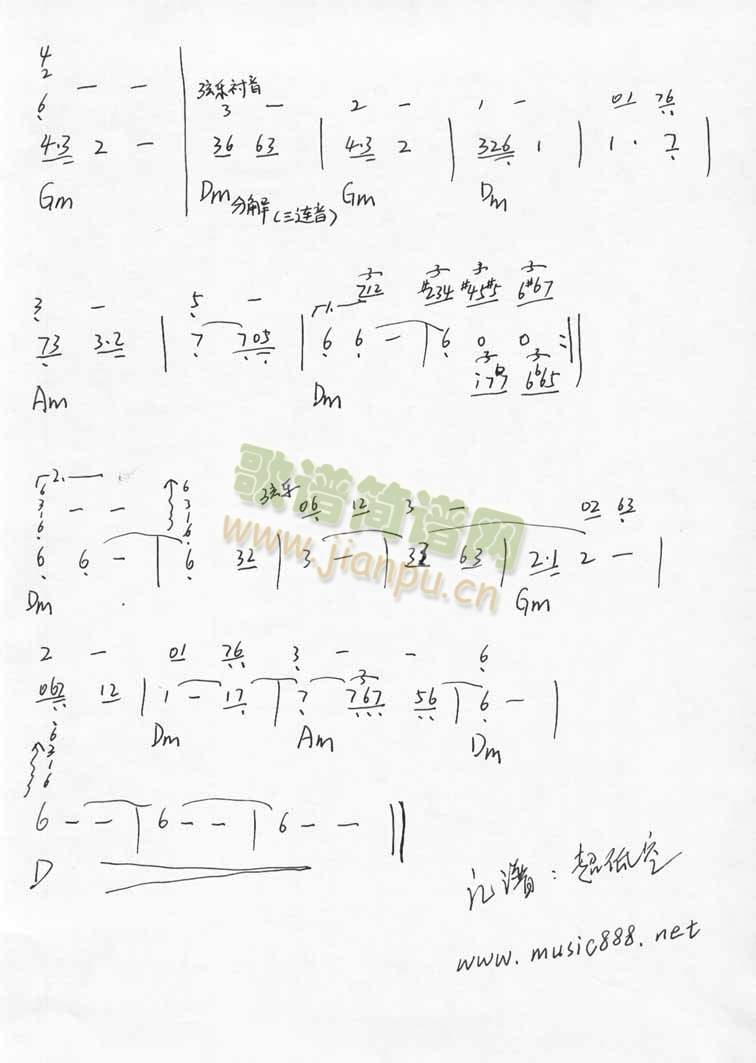 4
2 - -
6
4·3 2 - | 36 63 | 4·3 2 | 326 1 | 1 · 7 |
弦乐衬音
3 - 2 - 1 - 01 76
Gm Dm 分解(三连音) Gm Dm
3 - 5 - 712 #234 #45#5 6#67
73 3·2 | 7 705 | 6 6 - | 6 0 0 :||
Am Dm
2·
6
3 - -
1
6
6
3
1
6
弦乐 06 12 3 - 02 63
6 6 - | 6 32 | 3 - | 32 63 | 2·1 2 - |
Dm Gm
歌谱简谱网
www.jianpu.cn
2 - 01 76 3 - - 6
062 12 | 1 - 17 | 7 767 56 | 6 - |
Dm Am Dm
6
3
1
6
6 - - | 6 - - | 6 - - ||
D
记谱:超低空
www.music888.net